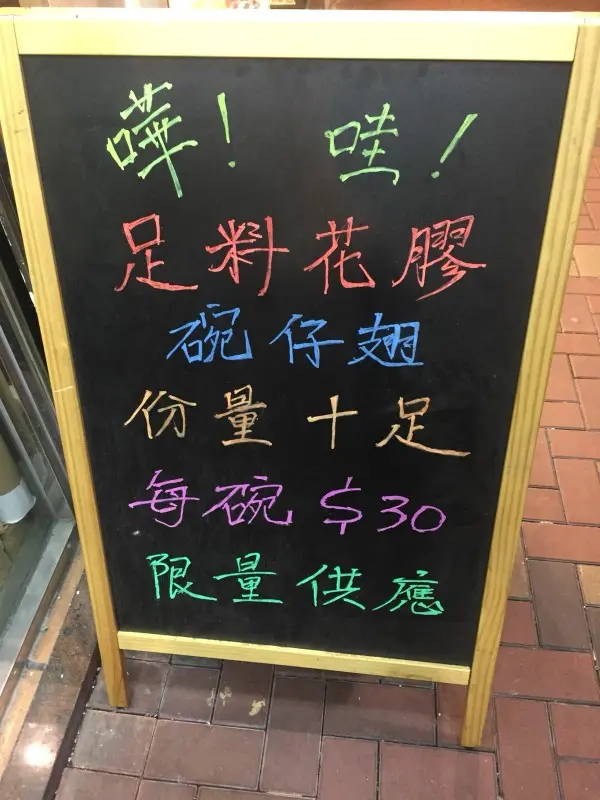 嘩！ 哇！
足料花膠
碗仔翅
份量十足
每碗 $30
限量供應